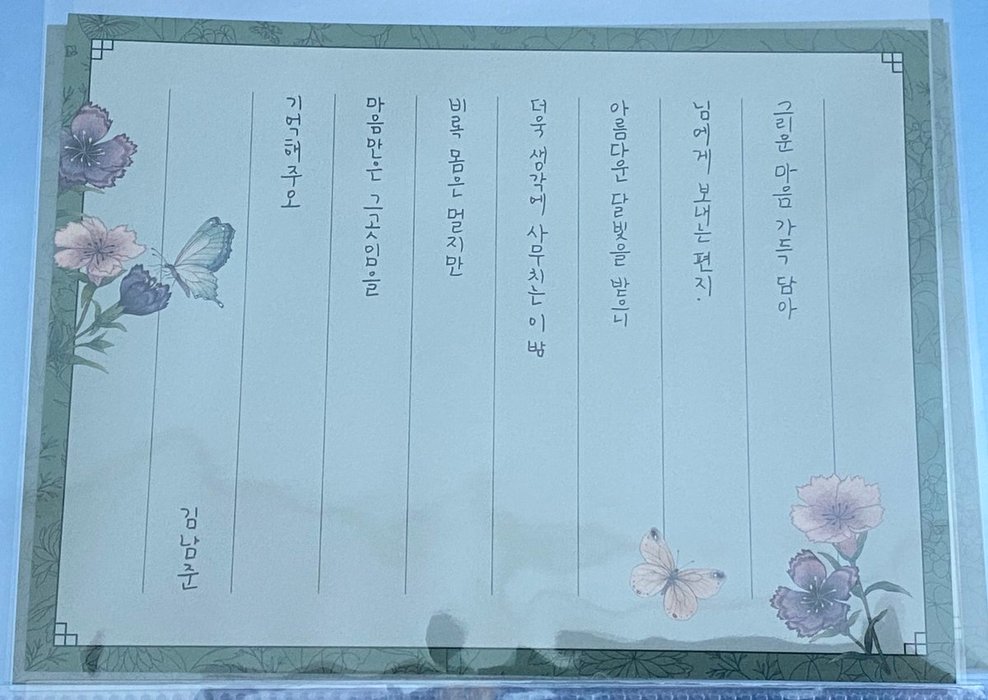 그리운 마음 가득 담아
님에게 보내는 편지.
아름다운 달빛을 받으니
더욱 생각에 사무치는 이 밤
비록 몸은 멀지만
마음만은 그곳임을
기억해주오
김남준